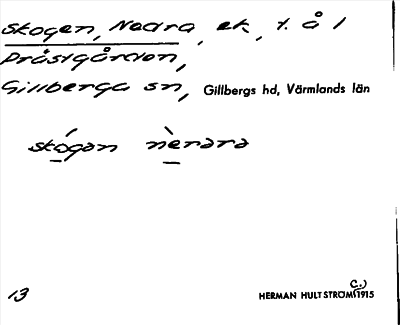 Skogen, Nedra, ek, t. å 1
Prästgården,
Gillberga sn, Gillbergs hd, Värmlands län
skógan nèrara
13
HERMAN HULTSTRÖM (C.) 1915